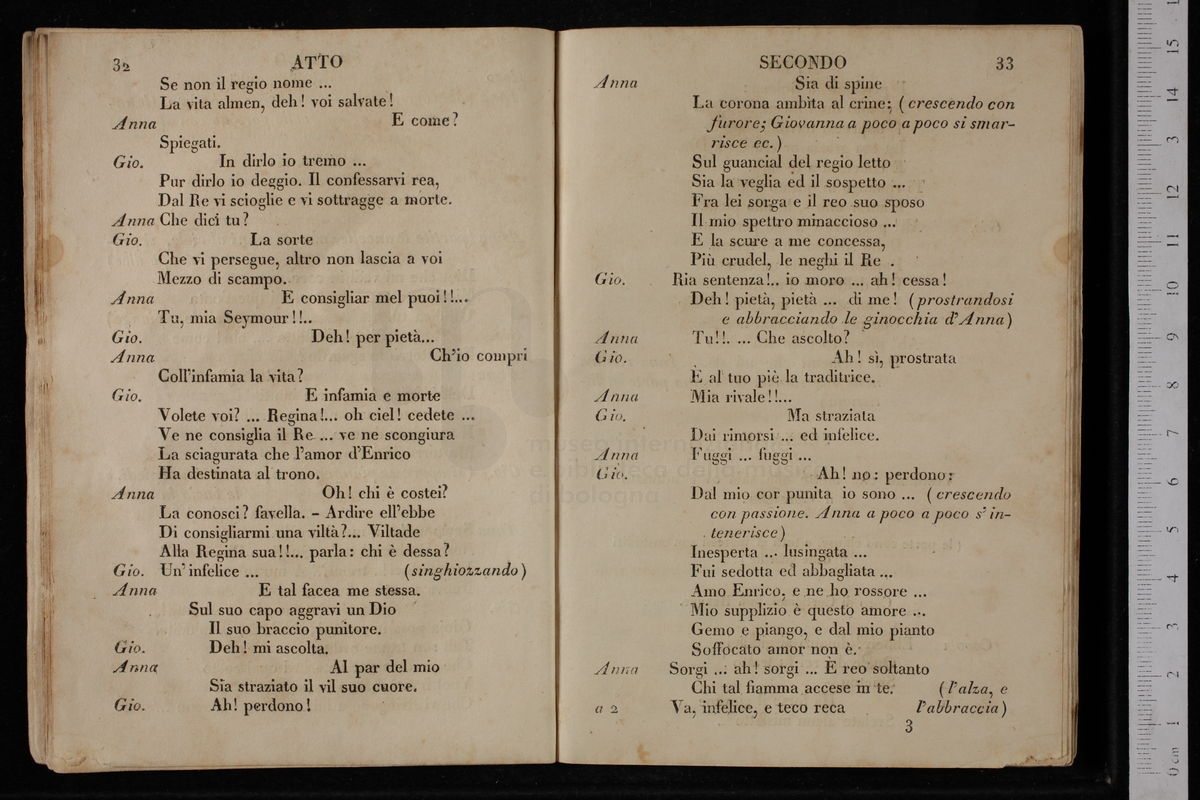 32 ATTO
Se non il regio nome ...
La vita almen, deh! voi salvate!
Anna E come?
Spiegati.
Gio. In dirlo io tremo ...
Pur dirlo io deggio. Il confessarvi rea,
Dal Re vi scioglie e vi sottragge a morte.
Anna Che dici tu?
Gio. La sorte
Che vi persegue, altro non lascia a voi
Mezzo di scampo.
Anna E consigliar mel puoi!!...
Tu, mia Seymour!!..
Gio. Deh! per pietà...
Anna Ch'io compri
Coll'infamia la vita?
Gio. E infamia e morte
Volete voi? ... Regina!... oh ciel! cedete ...
Ve ne consiglia il Re ... ve ne scongiura
La sciagurata che l'amor d'Enrico
Ha destinata al trono.
Anna Oh! chi è costei?
La conosci? favella. – Ardire ell'ebbe
Di consigliarmi una viltà?... Viltade
Alla Regina sua!!... parla: chi è dessa?
Gio. Un' infelice ... (singhiozzando)
Anna E tal facea me stessa.
Sul suo capo aggravi un Dio
Il suo braccio punitore.
Gio. Deh! mi ascolta.
Anna Al par del mio
Sia straziato il vil suo cuore.
Gio. Ah! perdono!
SECONDO 33
Anna Sia di spine
La corona ambìta al crine; (crescendo con
furore; Giovanna a poco a poco si smar-
risce ec.)
Sul guancial del regio letto
Sia la veglia ed il sospetto ...
Fra lei sorga e il reo suo sposo
Il mio spettro minaccioso ...
E la scure a me concessa,
Più crudel, le neghi il Re .
Gio. Ria sentenza!.. io moro ... ah! cessa!
Deh! pietà, pietà ... di me! (prostrandosi
e abbracciando le ginocchia d'Anna)
Anna Tu!!. ... Che ascolto?
Gio. Ah! sì, prostrata
È al tuo piè la traditrice.
Anna Mia rivale!!...
Gio. Ma straziata
Dai rimorsi ... ed infelice.
Anna Fuggi ... fuggi ...
Gio. Ah! no: perdono:
Dal mio cor punita io sono ... (crescendo
con passione. Anna a poco a poco s'in-
tenerisce)
Inesperta ... lusingata ...
Fui sedotta ed abbagliata ...
Amo Enrico, e ne ho rossore ...
Mio supplizio è questo amore ...
Gemo e piango, e dal mio pianto
Soffocato amor non è.
Anna Sorgi ... ah! sorgi ... È reo soltanto
Chi tal fiamma accese in te. (l'alza, e
a 2 Va, infelice, e teco reca l'abbraccia)
3